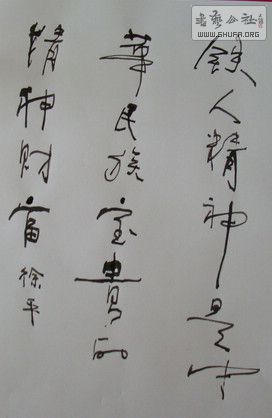 铁人精神是中
华民族宝貴的
精神财富
徐平
書藝公社
WWW.SHUFA.ORG